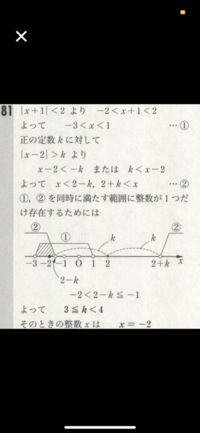 81 |x+1|<2 より -2<x+1<2
よって -3<x<1 …①
正の定数 k に対して
|x-2|>k より
x-2<-k または k<x-2
よって x<2-k, 2+k<x …②
①, ②を同時に満たす範囲に整数が1つだ
け存在するためには
② ① k k ②
-3 -2 -1 O 1 2 2+k x
2-k
-2<2-k≦-1
よって 3≦k<4
そのときの整数 x は x=-2